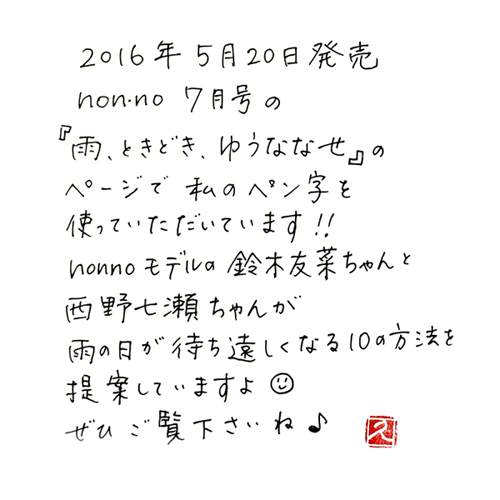 2016年 5月20日発売
non・no 7月号の
『雨、ときどき、ゆうななせ』の
ページで 私のペン字を
使っていただいています!!
nonnoモデルの 鈴木友菜ちゃんと
西野七瀬ちゃんが
雨の日が待ち遠しくなる10の方法を
提案していますよ☺
ぜひ ご覧下さいね♪